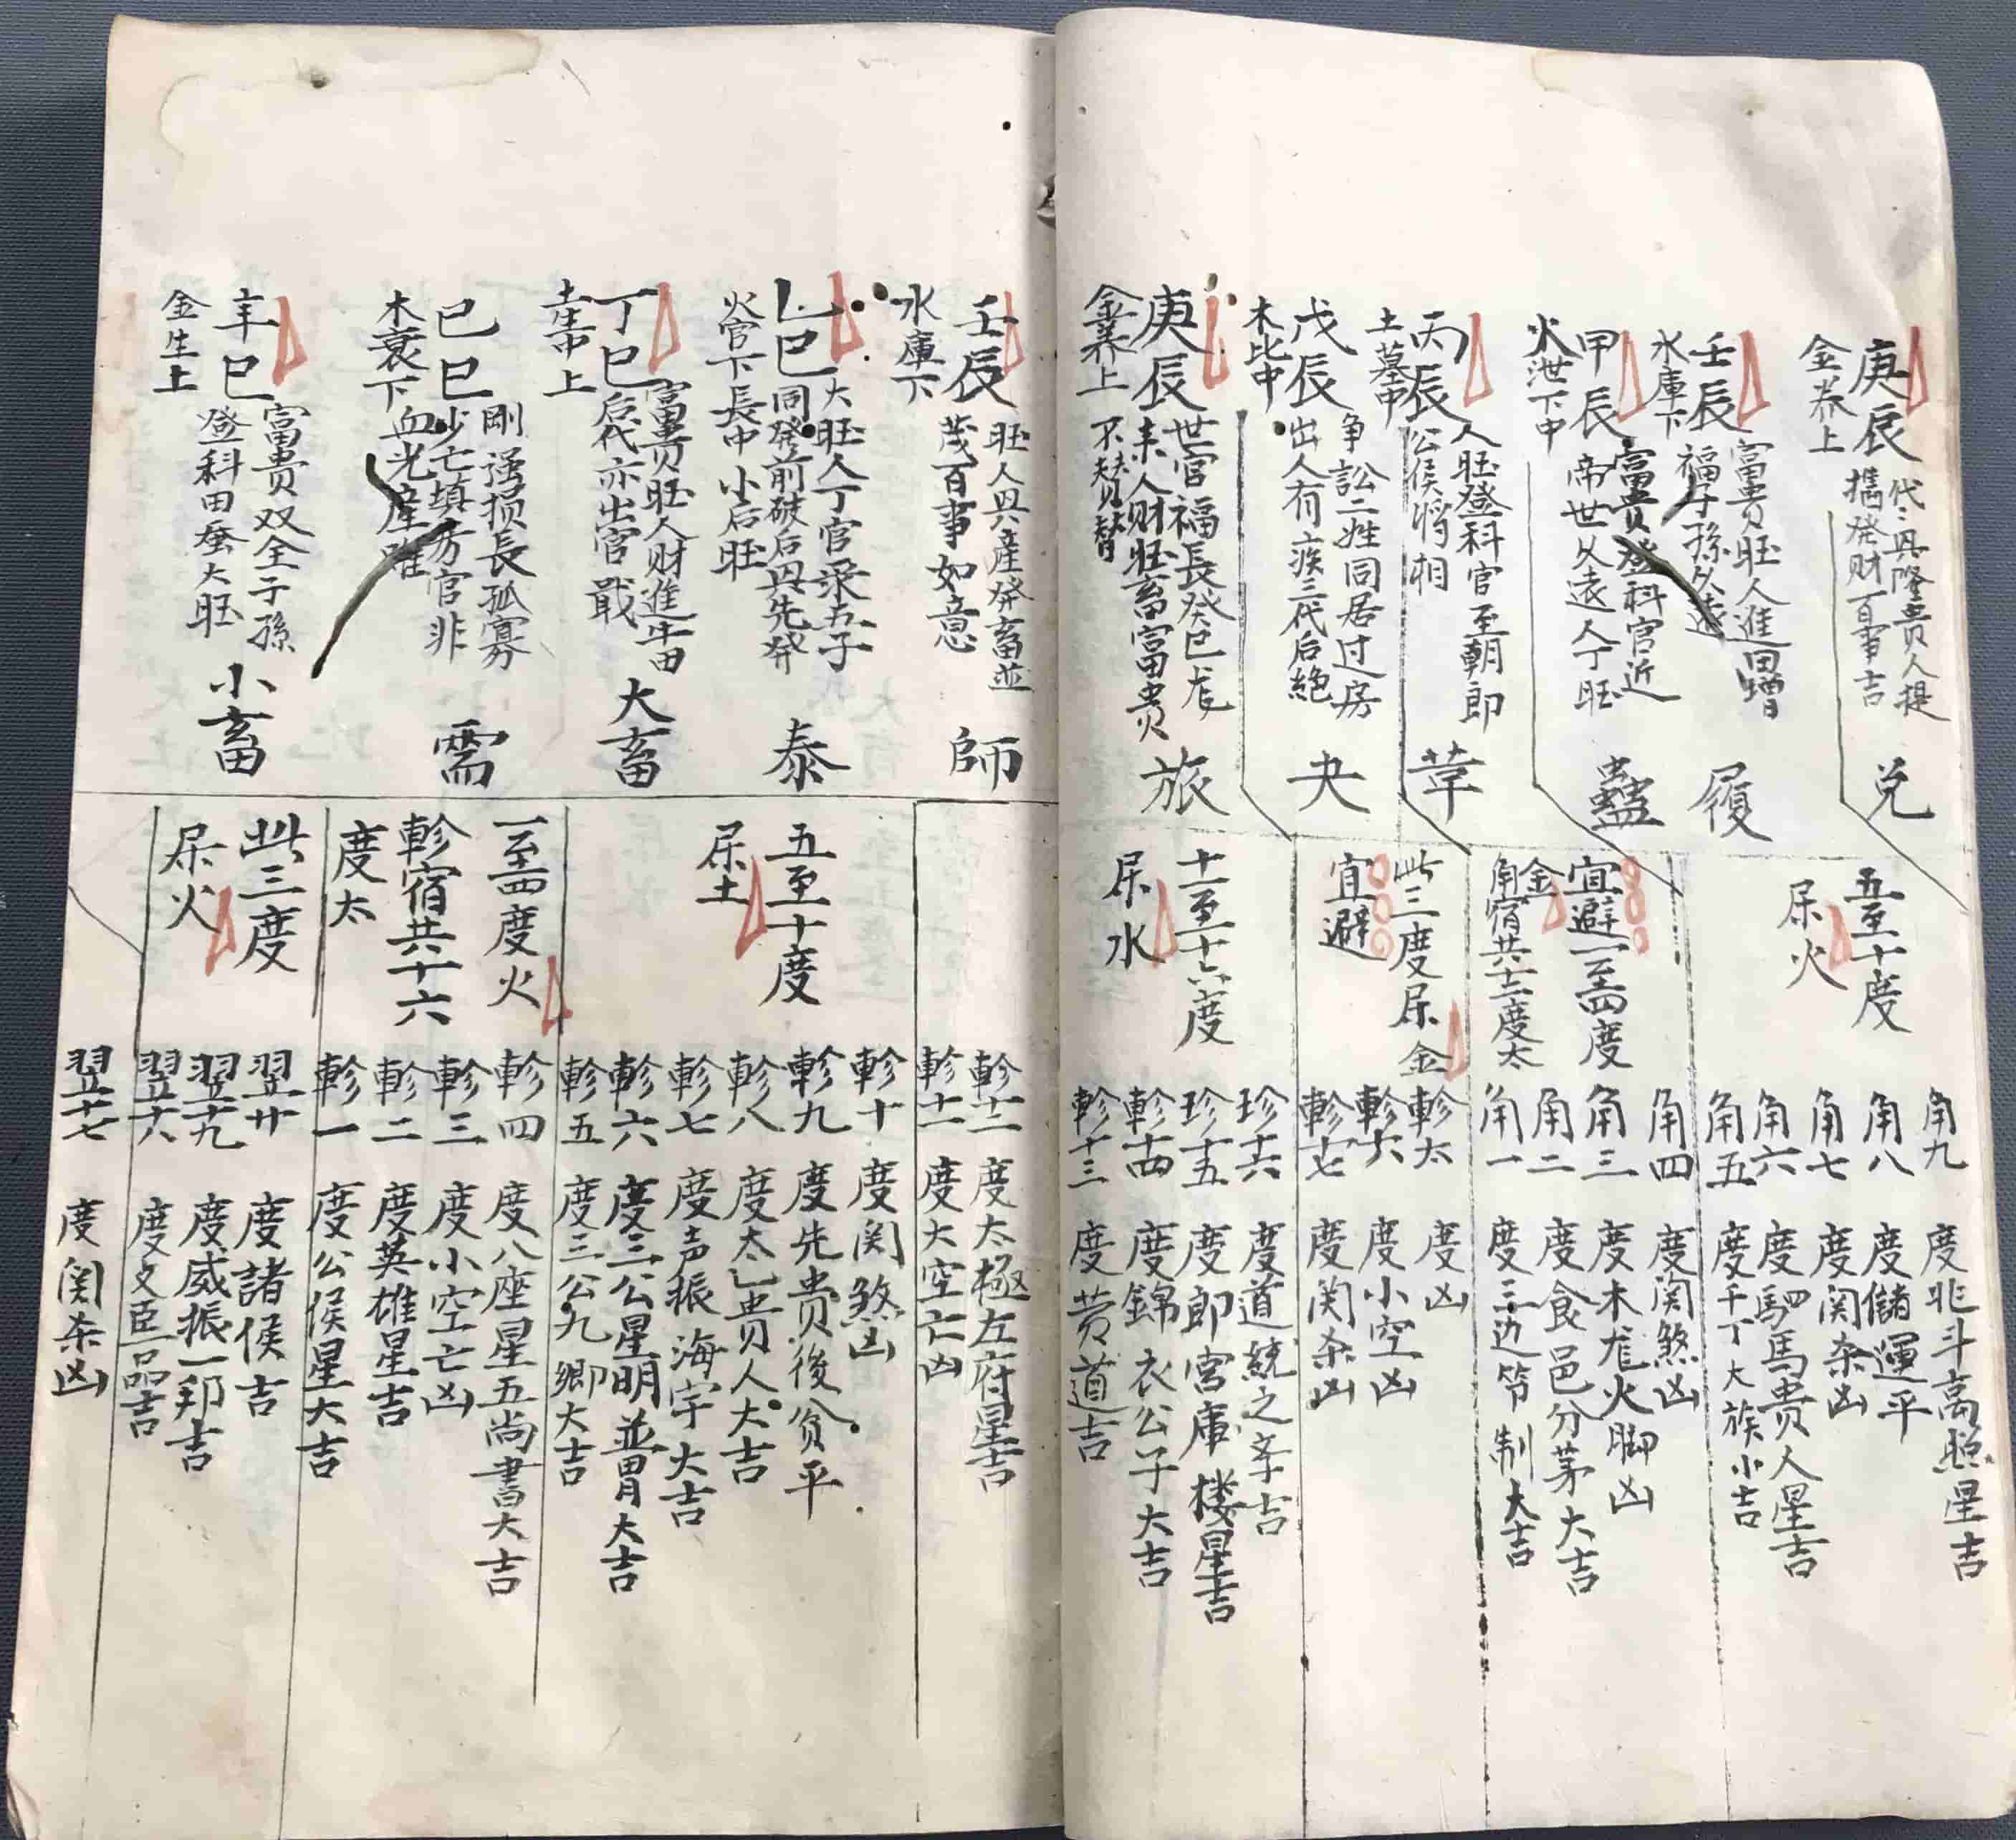 庚辰
金养上
代代興隆贵人提
攜發财百事吉
兑
壬辰
水庫下
富貴旺人進田增
福子孫久遠
履
甲辰
火泄下中
富贵登科官近
帝世久远人丁旺
蠱
丙辰
土墓中
人旺登科官至朝郎
公侯将相
革
戊辰
木比中
争訟二姓同居过房
出人有疾三代后絶
夬
庚辰
金养上
世官福長癸巳龙
耒人财旺畜富贵
旅
五至十度
尿火
宜避一至四度
金
角宿共十二度太
此三度尿金
宜避
十一至十六度
尿水
角九 度北斗高照星吉
角八 度儲運平
角七 度関杀凶
角六 度駟馬贵人星吉
角五 度千丁大族小吉
角四 度関煞凶
角三 度木龙火脚凶
角二 度食邑分茅大吉
角一 度三边节制大吉
軫太 度凶
軫六 度小空凶
軫十七 度関杀凶
珍十六 度道統之宗吉
珍十五 度郎宮庫楼星吉
軫十四 度錦衣公子大吉
軫十三 度黄道吉
壬辰
水庫下
旺人興產發畜並
茂百事如意
師
乙巳
火官下
大旺人丁官录五子
同發前破后興先發
長中小后旺
泰
丁巳
土生中上
富貴旺人财進牛田
后代亦出官戢
大畜
己巳
木衰下
剛强损長孤寡
少亡填房官非
血光產难
需
辛巳
金生上
富贵双全子孫
登科田蚕大旺
小畜
五至十度
尿土
一至四度火
軫宿共十六
度太
此三度
尿火
軫十二 度太極左府星吉
軫十一 度大空亡凶
軫十 度関煞凶
軫九 度先贵後贫平
軫八 度太乙贵人大吉
軫七 度声振海宇大吉
軫六 度三公星明並胃大吉
軫五 度三公九卿大吉
軫四 度八座星五尚書大吉
軫三 度小空亡凶
軫二 度英雄星吉
軫一 度公侯星大吉
翌廿 度諸侯吉
翌十九 度威振一邦吉
翌十八 度文臣一品吉
翌十七 度関杀凶